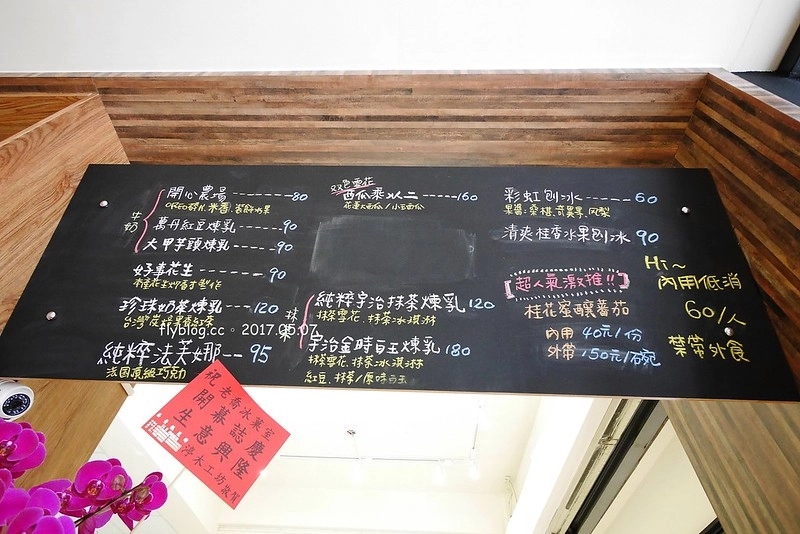 牛奶
開心農場 80
OREO碎片、米香、當季水果
萬丹紅豆煉乳 90
大甲芋頭煉乳 90
好事花生 90
珍珠奶茶煉乳 120
純粹法芙娜 95
法國頂級巧克力
双色雪花
西瓜乘以二 160
花蓮大西瓜/小玉西瓜
抹茶
純粹宇治抹茶煉乳 120
抹茶雪花、抹茶冰淇淋
宇治金時白玉煉乳 180
抹茶雪花、抹茶冰淇淋
紅豆、抹茶/原味白玉
彩虹刨冰 60
果醬:桑椹、奇異果、鳳梨
清爽桂香水果刨冰 90
超人氣激推!!
桂花蜜釀蕃茄
內用 40元/份
外帶 150元/碗
Hi~
內用低消
60/人
禁帶外食
flyblog.cc。2017.05.07
祝 老喬冰菓室
開幕誌慶
生意興隆
淨木工坊敬賀